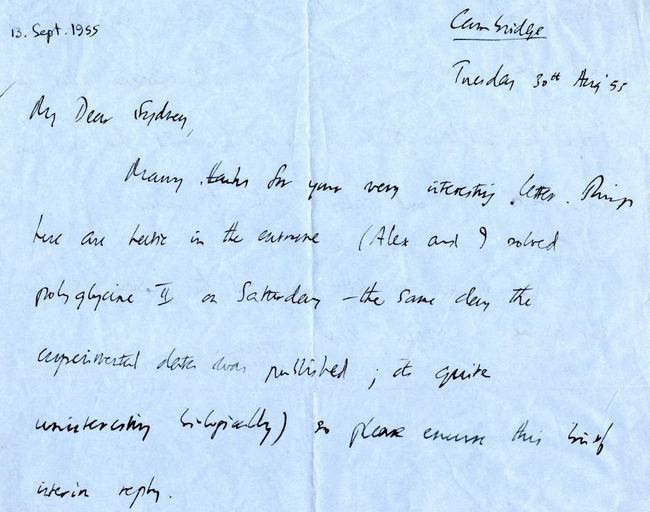 13. Sept. 1955
Cambridge
Tuesday 30th Aug '55
My Dear Sydney,
Many thanks for your very interesting letter. Things
here are hectic in the extreme (Alex and I solved
polyglycine II on Saturday – the same day the
experimental data was published; its quite
uninteresting biologically) so please excuse this brief
interim reply.